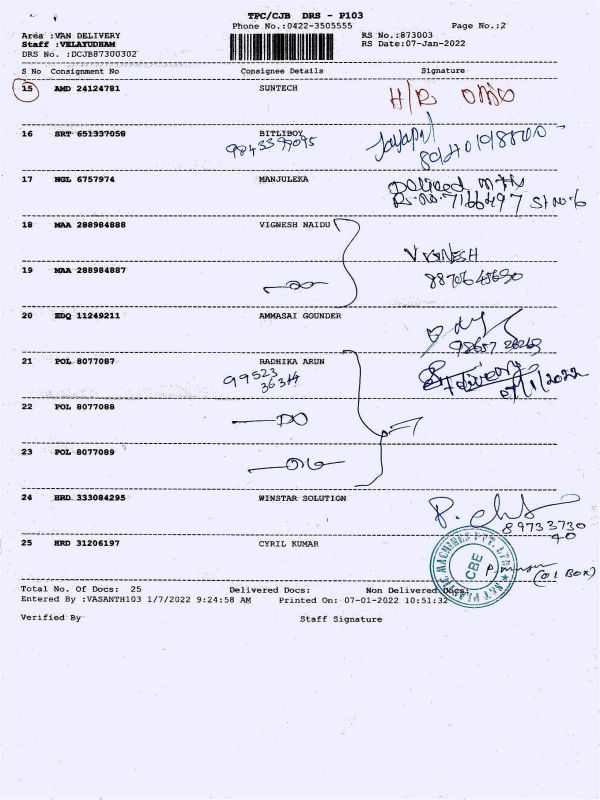 TPC/CJB DRS - P103
Phone No.:0422-3505555 Page No.:2
Area :VAN DELIVERY RS No.:873003
Staff :VELAYUDHAM RS Date:07-Jan-2022
DRS No. :DCJB87300302
S No Consignment No Consignee Details Signature
15 AMD 24124781 SUNTECH H/R
16 SRT 651337058 BITLIBOY
17 NGL 6757974 MANJULEKA
Rs.No. 7166497 Sl No 6
18 MAA 288984888 VIGNESH NAIDU
VIGNESH
19 MAA 288984887
20 EDQ 11249211 AMMASAI GOUNDER
21 POL 8077087 RADHIKA ARUN
99523
07/1/2022
22 POL 8077088
23 POL 8077089
24 HRD 333084295 WINSTAR SOLUTION
89733730
40
25 HRD 31206197 CYRIL KUMAR
CBE
(01 BOX)
Total No. Of Docs: 25 Delivered Docs: Non Delivered Docs:
Entered By :VASANTH103 1/7/2022 9:24:58 AM Printed On: 07-01-2022 10:51:32
Verified By Staff Signature